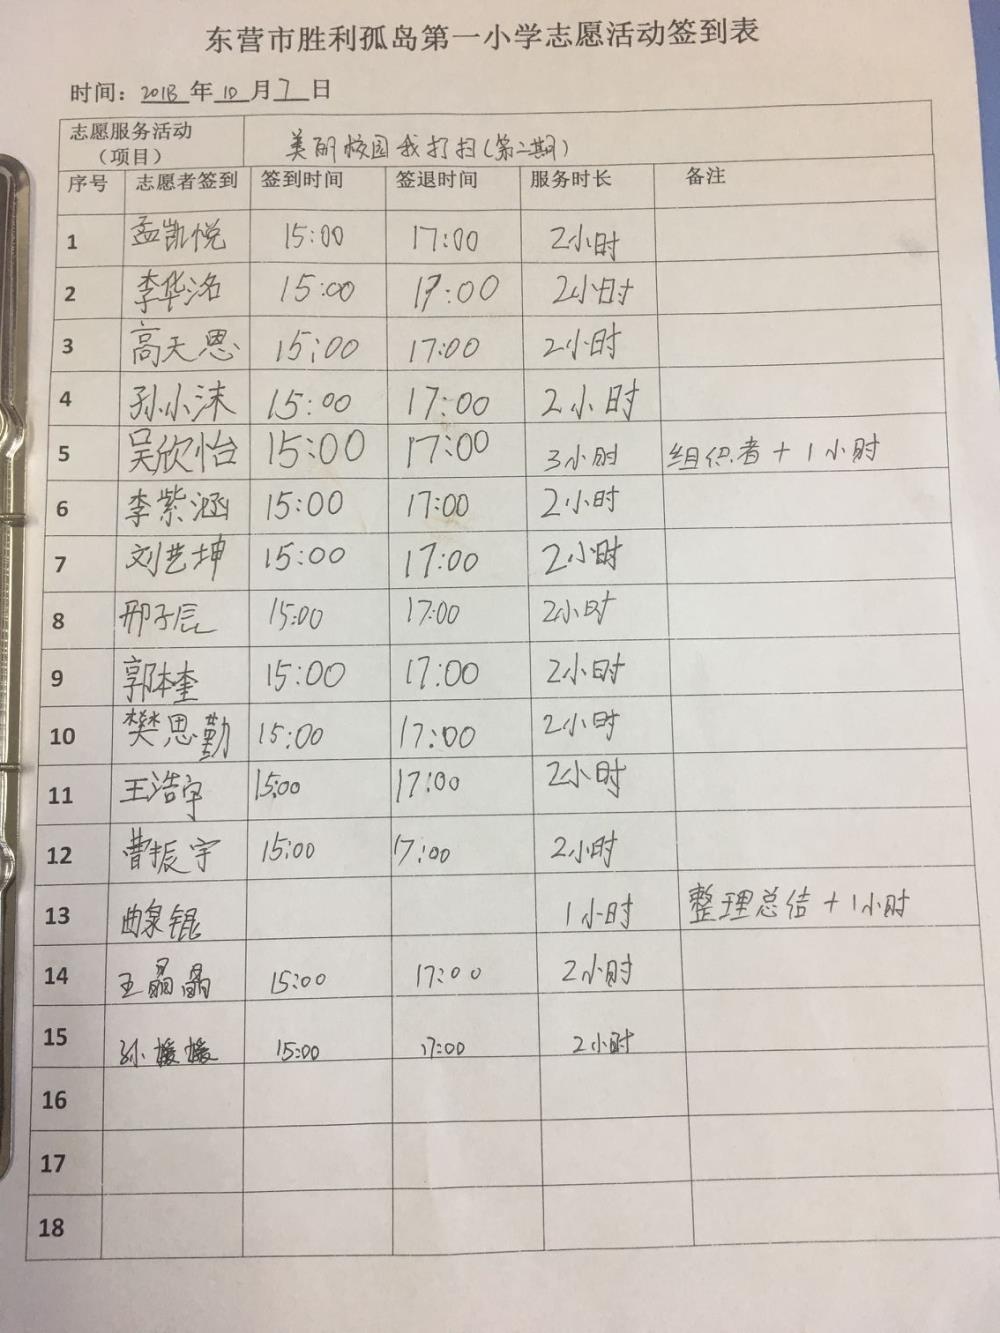 东营市胜利孤岛第一小学志愿活动签到表
时间：2018年10月7日
志愿服务活动（项目） 美丽校园我打扫(第二期)
序号 志愿者签到 签到时间 签退时间 服务时长 备注
1 孟凯悦 15:00 17:00 2小时
2 李华洺 15:00 17:00 2小时
3 高天恩 15:00 17:00 2小时
4 孙小沫 15:00 17:00 2小时
5 吴欣怡 15:00 17:00 3小时 组织者+1小时
6 李紫涵 15:00 17:00 2小时
7 刘艺坤 15:00 17:00 2小时
8 邢子辰 15:00 17:00 2小时
9 郭本奎 15:00 17:00 2小时
10 樊思勤 15:00 17:00 2小时
11 王浩宇 15:00 17:00 2小时
12 曹振宇 15:00 17:00 2小时
13 曲泉锟 1小时 整理总结+1小时
14 王晶晶 15:00 17:00 2小时
15 孙媛媛 15:00 17:00 2小时
16
17
18